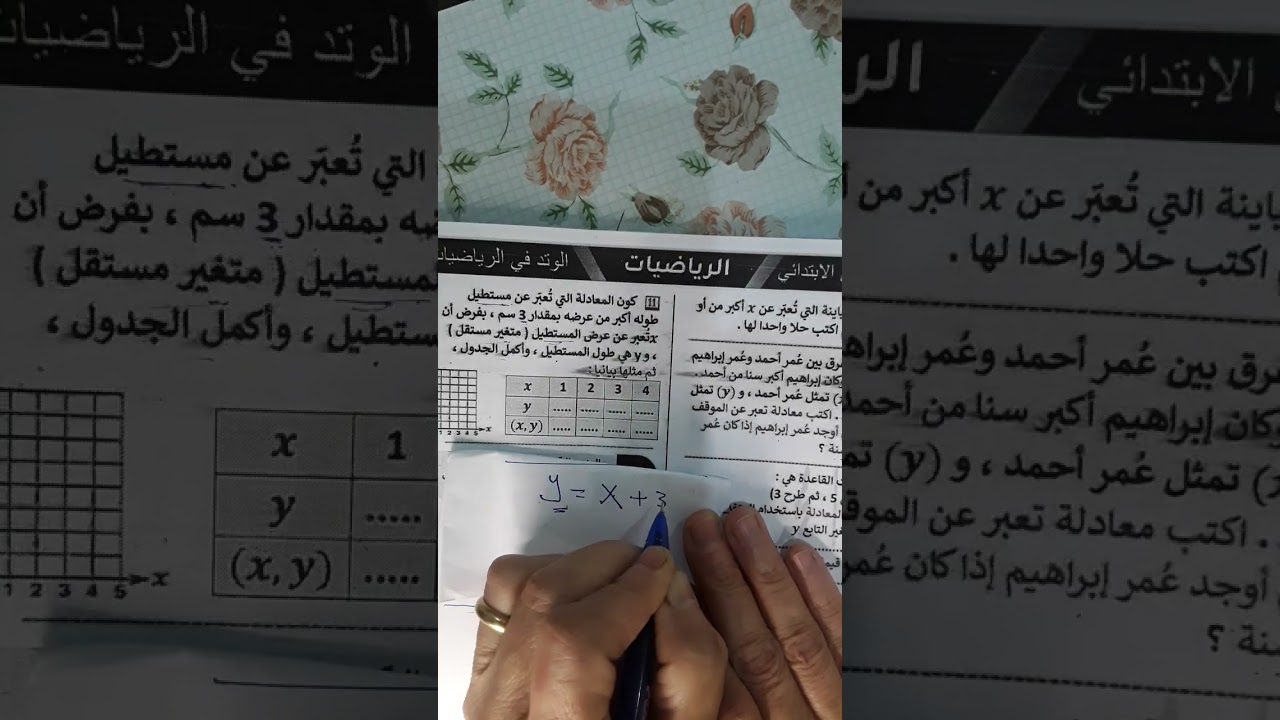 الابتدائي الرياضيات الوتد في الرياضيات
11 كون المعادلة التي تُعبّر عن مستطيل
طوله أكبر من عرضه بمقدار 3 سم ، بفرض أن
x تُعبر عن عرض المستطيل ( متغير مستقل )
، و y هي طول المستطيل ، وأكمل الجدول ،
ثم مثلها بيانيا :
x 1 2 3 4
y ..... ..... ..... .....
(x, y) ..... ..... ..... .....
1 2 3 4 5 x
التي تُعبّر عن x أكبر من أو
اكتب حلا واحدا لها .
بين عُمر أحمد وعُمر إبراهيم
وكان إبراهيم أكبر سنا من أحمد .
تمثل عُمر أحمد ، و (y) تمثل
. اكتب معادلة تعبر عن الموقف
أوجد عُمر إبراهيم إذا كان عُمر
سنة ؟
القاعدة هي :
5 ، ثم طرح 3)
المعادلة باستخدام
التابع y
y = x + 3